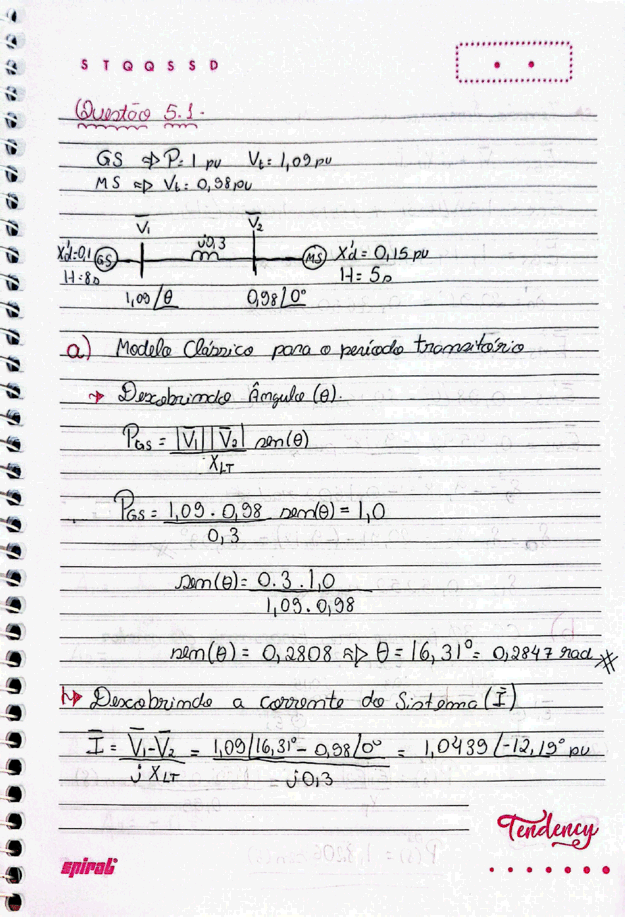 S T Q Q S S D
Questão 5.1.
GS ⇒ P = 1 pu   Vt: 1,09 pu
MS ⇒ Vt: 0,98 pu
V̄1   V̄2
j0,3
X'd=0,1 GS   MS X'd = 0,15 pu
H=8s   H= 5s
1,09/θ   0,98/0°
a) Modelo Clássico para o período transitório
→ Descobrindo Ângulo (θ).
PGS = |V̄1||V̄2| sen(θ)
XLT
PGS = 1,09 . 0,98 sen(θ) = 1,0
0,3
sen(θ) = 0.3 . 1,0
1,09 . 0,98
sen(θ) = 0,2808 ⇒ θ = 16,31° = 0,2847 rad
↳ Descobrindo a corrente do Sistema (Ī)
Ī = V̄1-V̄2 = 1,09/16,31° - 0,98/0° = 1,0439/-12,19° pu
j XLT   j0,3
Tendency
spiral